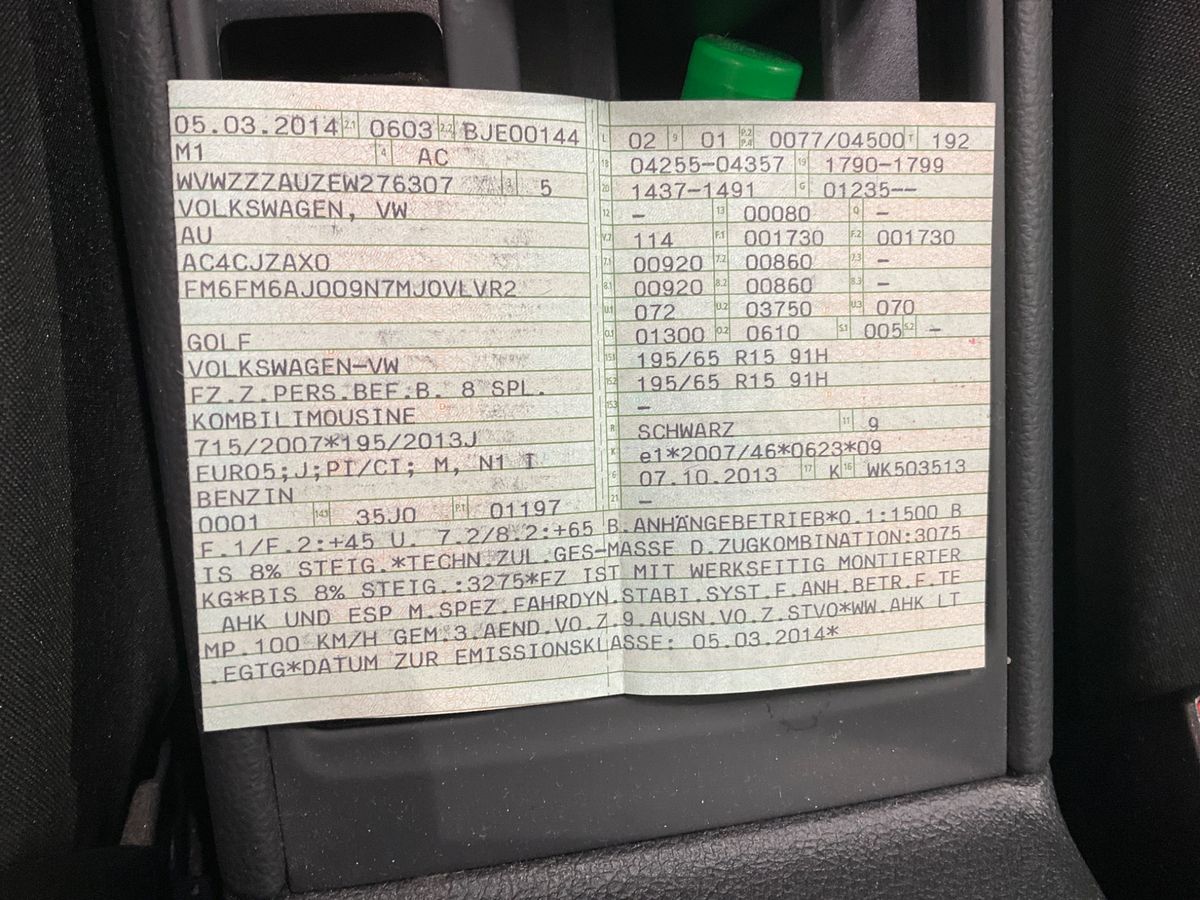 05.03.2014 2.1 0603 2.2 BJE00144
M1 4 AC
WVWZZZAUZEW276307 5
VOLKSWAGEN, VW
AU
AC4CJZAX0
FM6FM6AJ009N7MJOVLVR2
GOLF
VOLKSWAGEN-VW
FZ.Z.PERS.BEF.B. 8 SPL.
KOMBILIMOUSINE
715/2007*195/2013J
EURO5;J;PI/CI; M, N1 I
BENZIN
0001 14.1 35J0 P.1 01197
L 02 9 01 P.2 P.4 0077/04500 T 192
18 04255-04357 19 1790-1799
20 1437-1491 G 01235--
12 - 13 00080 Q -
V.7 114 F.1 001730 F.2 001730
7.1 00920 7.2 00860 7.3 -
8.1 00920 8.2 00860 8.3 -
U.1 072 U.2 03750 U.3 070
O.1 01300 O.2 0610 S.1 005 S.2 -
15.1 195/65 R15 91H
15.2 195/65 R15 91H
15.3 -
R SCHWARZ 11 9
K e1*2007/46*0623*09
6 07.10.2013 17 K 16 WK503513
21 -
F.1/F.2:+45 U. 7.2/8.2:+65 B.ANHÄNGEBETRIEB*O.1:1500 B
IS 8% STEIG.*TECHN.ZUL.GES-MASSE D.ZUGKOMBINATION:3075
KG*BIS 8% STEIG.:3275*FZ IST MIT WERKSEITIG MONTIERTER
AHK UND ESP M.SPEZ.FAHRDYN.STABI.SYST.F.ANH.BETR.F.TE
MP.100 KM/H GEM.3.AEND.VO.Z.9.AUSN.VO.Z.STVO*WW.AHK LT
.EGTG*DATUM ZUR EMISSIONSKLASSE: 05.03.2014*